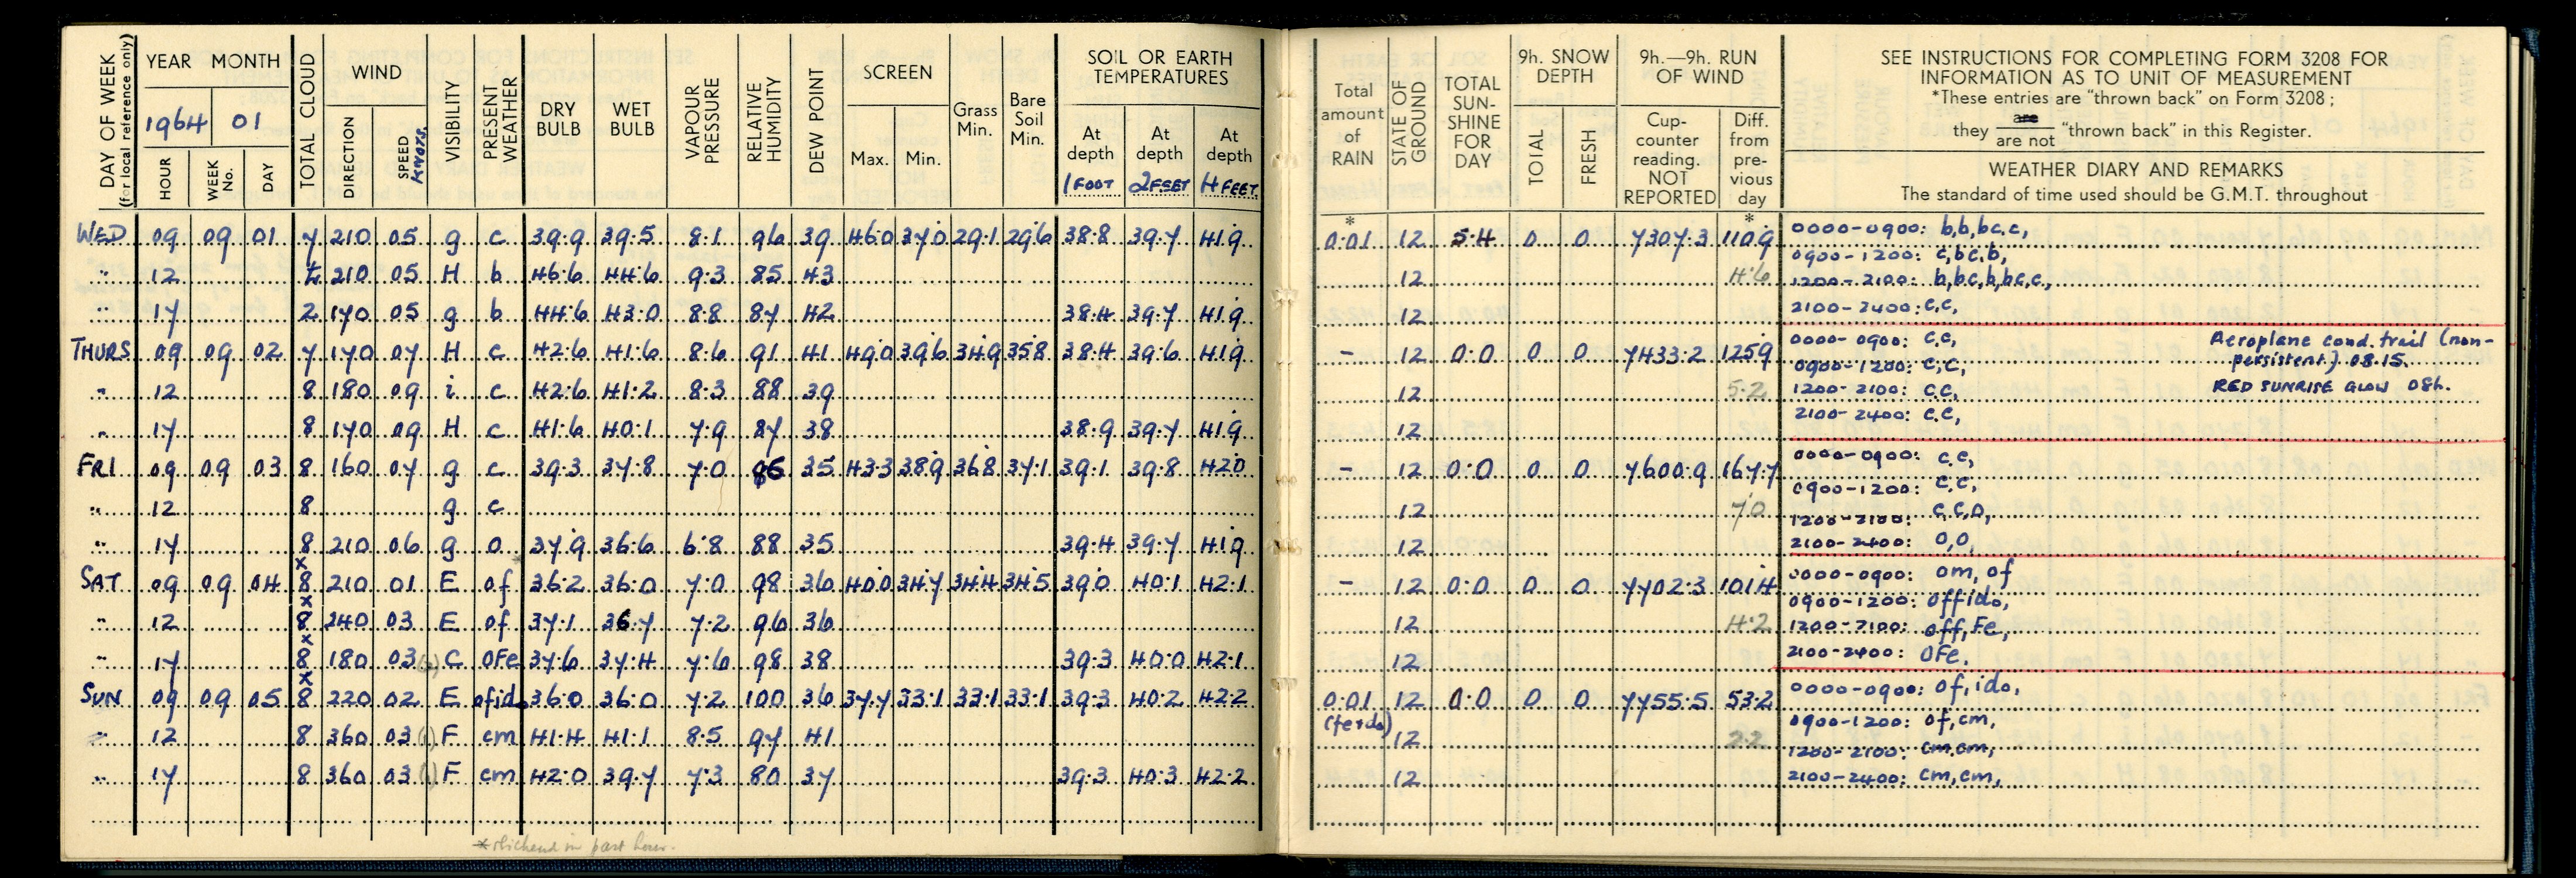 DAY OF WEEK
(for local reference only)
YEAR MONTH
1964 01
HOUR WEEK No. DAY
TOTAL CLOUD
WIND
DIRECTION SPEED KNOTS.
VISIBILITY
PRESENT WEATHER
DRY BULB
WET BULB
VAPOUR PRESSURE
RELATIVE HUMIDITY
DEW POINT
SCREEN
Max. Min.
Grass Min.
Bare Soil Min.
SOIL OR EARTH
TEMPERATURES
At depth 1 FOOT
At depth 2 FEET
At depth 4 FEET.
WED 09 09 01 7 210 05 g c 39.9 39.5 8.1 96 39 46.0 37.0 29.1 29.6 38.8 39.7 41.9
" 12 210 05 H b 46.6 44.6 9.3 85 43
" 17 2 170 05 g b 44.6 43.0 8.8 87 42 38.4 39.7 41.9
THURS 09 09 02 7 170 07 H c 42.6 41.6 8.6 91 41 49.0 39.6 34.9 35.8 38.4 39.6 41.9
" 12 8 180 09 i c 42.6 41.2 8.3 88 39
" 17 8 170 09 H c 41.6 40.1 7.9 87 38 38.9 39.7 41.9
FRI 09 09 03 8 160 07 g c 39.3 37.8 7.0 86 35 43.3 38.9 36.8 37.1 39.1 39.8 42.0
" 12 8 g c
" 17 8 210 06 g o 37.9 36.6 6.8 88 35 39.4 39.7 41.9
SAT 09 09 04 x8 210 01 E of 36.2 36.0 7.0 98 36 40.0 34.7 34.4 34.5 39.0 40.1 42.1
" 12 x8 240 03 E of 37.1 36.7 7.2 96 36
" 17 x8 180 03 C OFe 37.6 37.4 7.6 98 38 39.3 40.0 42.1
SUN 09 09 05 x8 220 02 E ofid 36.0 36.0 7.2 100 36 37.7 33.1 33.1 33.1 39.3 40.2 42.2
" 12 8 360 03 F cm 41.4 41.1 8.5 97 41
" 17 8 360 03 F cm 42.0 39.7 7.3 80 37 39.3 40.3 42.2
in past hour.
Total amount of RAIN
STATE OF GROUND
TOTAL SUN-SHINE FOR DAY
9h. SNOW DEPTH
TOTAL FRESH
9h.—9h. RUN OF WIND
Cup-counter reading. NOT REPORTED
Diff. from pre-vious day
SEE INSTRUCTIONS FOR COMPLETING FORM 3208 FOR
INFORMATION AS TO UNIT OF MEASUREMENT
*These entries are "thrown back" on Form 3208;
they are / are not "thrown back" in this Register.
WEATHER DIARY AND REMARKS
The standard of time used should be G.M.T. throughout
* *
0.01 12 5.4 0 0 7307.3 110.9 0000-0900: b,b,bc,c,
0900-1200: c,bc,b,
12 4.6 1200-2100: b,bc,b,bc,c,
12 2100-2400: c,c,
- 12 0.0 0 0 7433.2 125.9 0000-0900: c,c, Aeroplane cond. trail (non-
0900-1200: c,c, persistent) 08.15.
12 5.2 1200-2100: c,c, RED SUNRISE GLOW 08h.
12 2100-2400: c,c,
- 12 0.0 0 0 7600.9 167.7 0000-0900: c,c,
0900-1200: c,c,
12 7.0 1200-2100: c,c,o,
12 2100-2400: o,o,
- 12 0.0 0 0 7702.3 101.4 0000-0900: om, of
0900-1200: offido,
12 4.2 1200-2100: off,Fe,
12 2100-2400: OFe,
0.01 12 0.0 0 0 7755.5 53.2 0000-0900: of, ido,
0900-1200: of,cm,
12 2.2 1200-2100: cm,cm,
12 2100-2400: cm,cm,